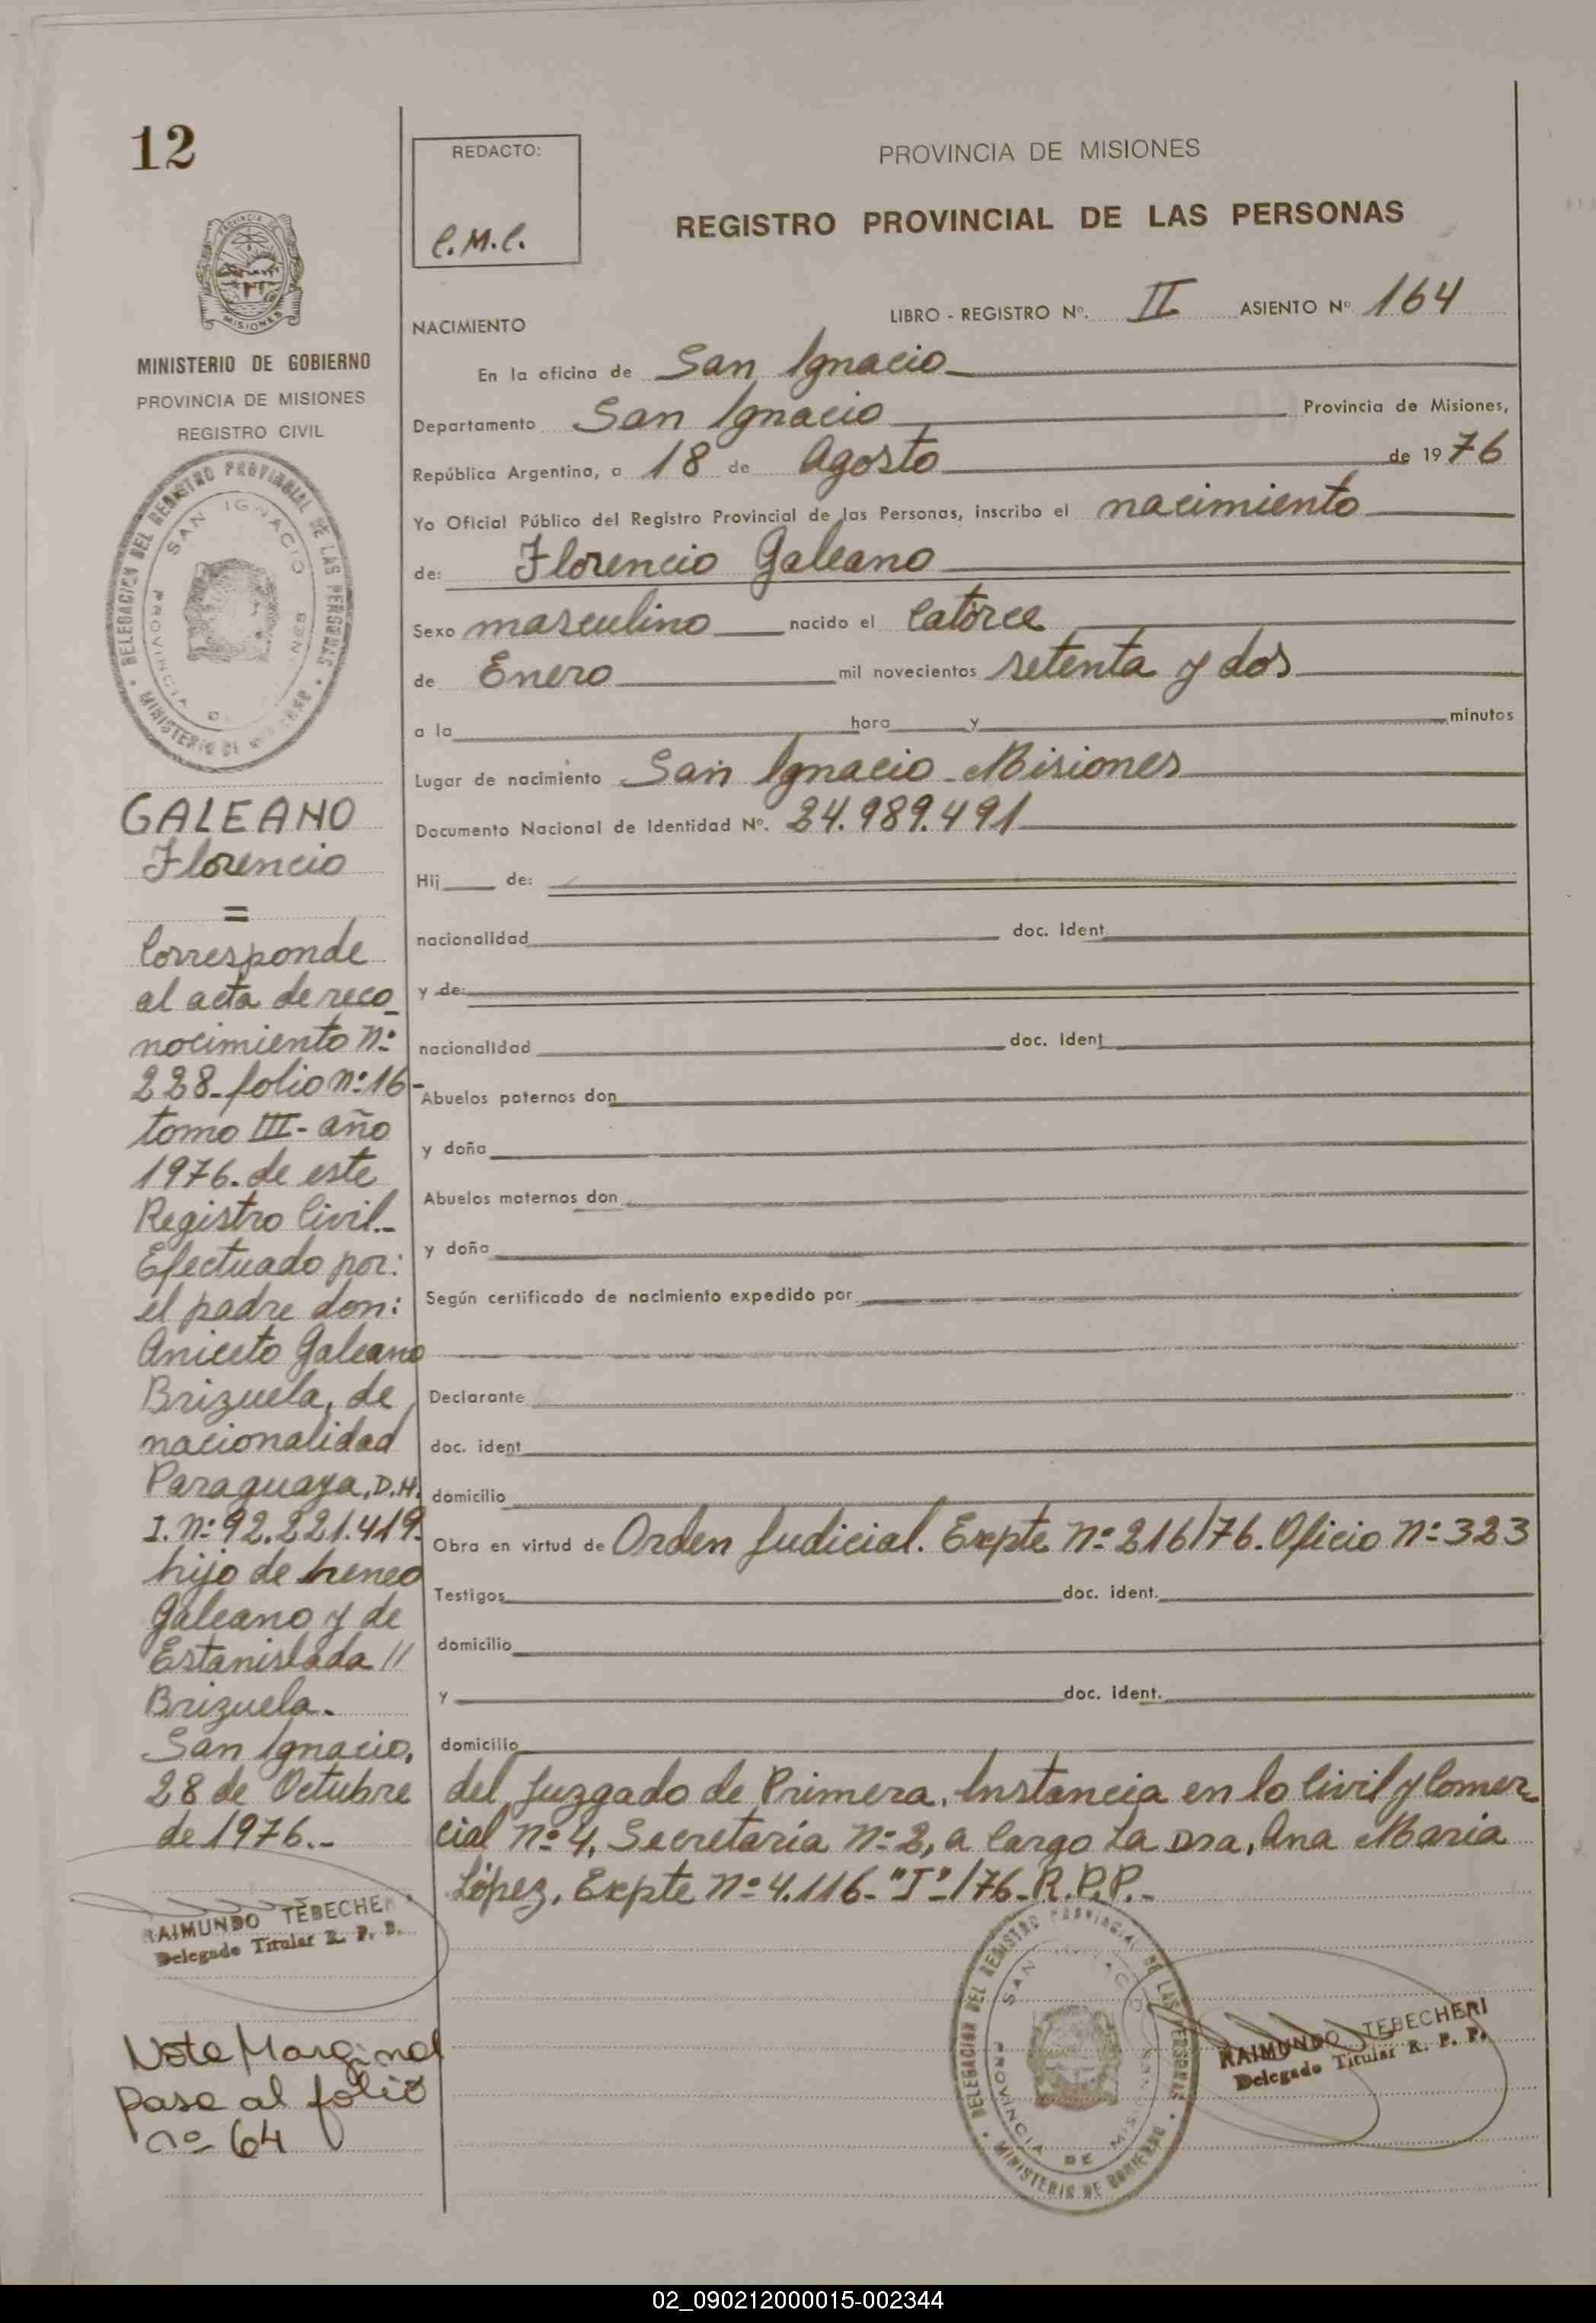 12
MINISTERIO DE GOBIERNO
PROVINCIA DE MISIONES
REGISTRO CIVIL
DELEGACION DEL REGISTRO PROVINCIAL DE LAS PERSONAS
MINISTERIO DE GOBIERNO
SAN IGNACIO
PROVINCIA
GALEANO
Florencio
=
Corresponde
al acta de reco_
nocimiento Nº:
228-folio nº:16-
tomo III-año
1976. de este
Registro Civil.-
Efectuado por:
el padre don:
Aniceto Galeano
Brizuela, de
nacionalidad
Paraguaya, D.N.
I. Nº: 92.221.419.
hijo de Ireneo
Galeano y de
Estanislada //
Brizuela.
San Ignacio,
28 de Octubre
de 1976.-
RAIMUNDO TEBECHERI
Delegado Titular R. P. P.
Nota Marginal
pasa al folio
nº 64
REDACTO:
C.M.C.
PROVINCIA DE MISIONES
REGISTRO PROVINCIAL DE LAS PERSONAS
LIBRO - REGISTRO Nº. II ASIENTO Nº 164
NACIMIENTO
En la oficina de San Ignacio
Departamento San Ignacio Provincia de Misiones,
República Argentina, a 18 de Agosto de 1976
Yo Oficial Público del Registro Provincial de las Personas, inscribo el nacimiento
de: Florencio Galeano
Sexo masculino nacido el Catorce
de Enero mil novecientos setenta y dos
a la hora y minutos
Lugar de nacimiento San Ignacio - Misiones
Documento Nacional de Identidad Nº. 24.989.491
Hij de:
nacionalidad doc. ident.
y de:
nacionalidad doc. ident.
Abuelos paternos don
y doña
Abuelos maternos don
y doña
Según certificado de nacimiento expedido por
Declarante
doc. ident
domicilio
Obra en virtud de Orden Judicial. Expte Nº: 216/76. Oficio Nº: 323
Testigos doc. ident.
domicilio
y doc. ident.
domicilio
del Juzgado de Primera, Instancia en lo Civil y Comer
cial Nº 4, Secretaría Nº: 2, a Cargo La Dra, Ana Maria
López, Expte Nº 4.116-"I"-/76-R.P.P.-
DELEGACION DEL REGISTRO PROVINCIAL DE LAS PERSONAS
MINISTERIO DE GOBIERNO
SAN IGNACIO
PROVINCIA DE MISIONES
RAIMUNDO TEBECHERI
Delegado Titular R. P. P.
02_090212000015-002344